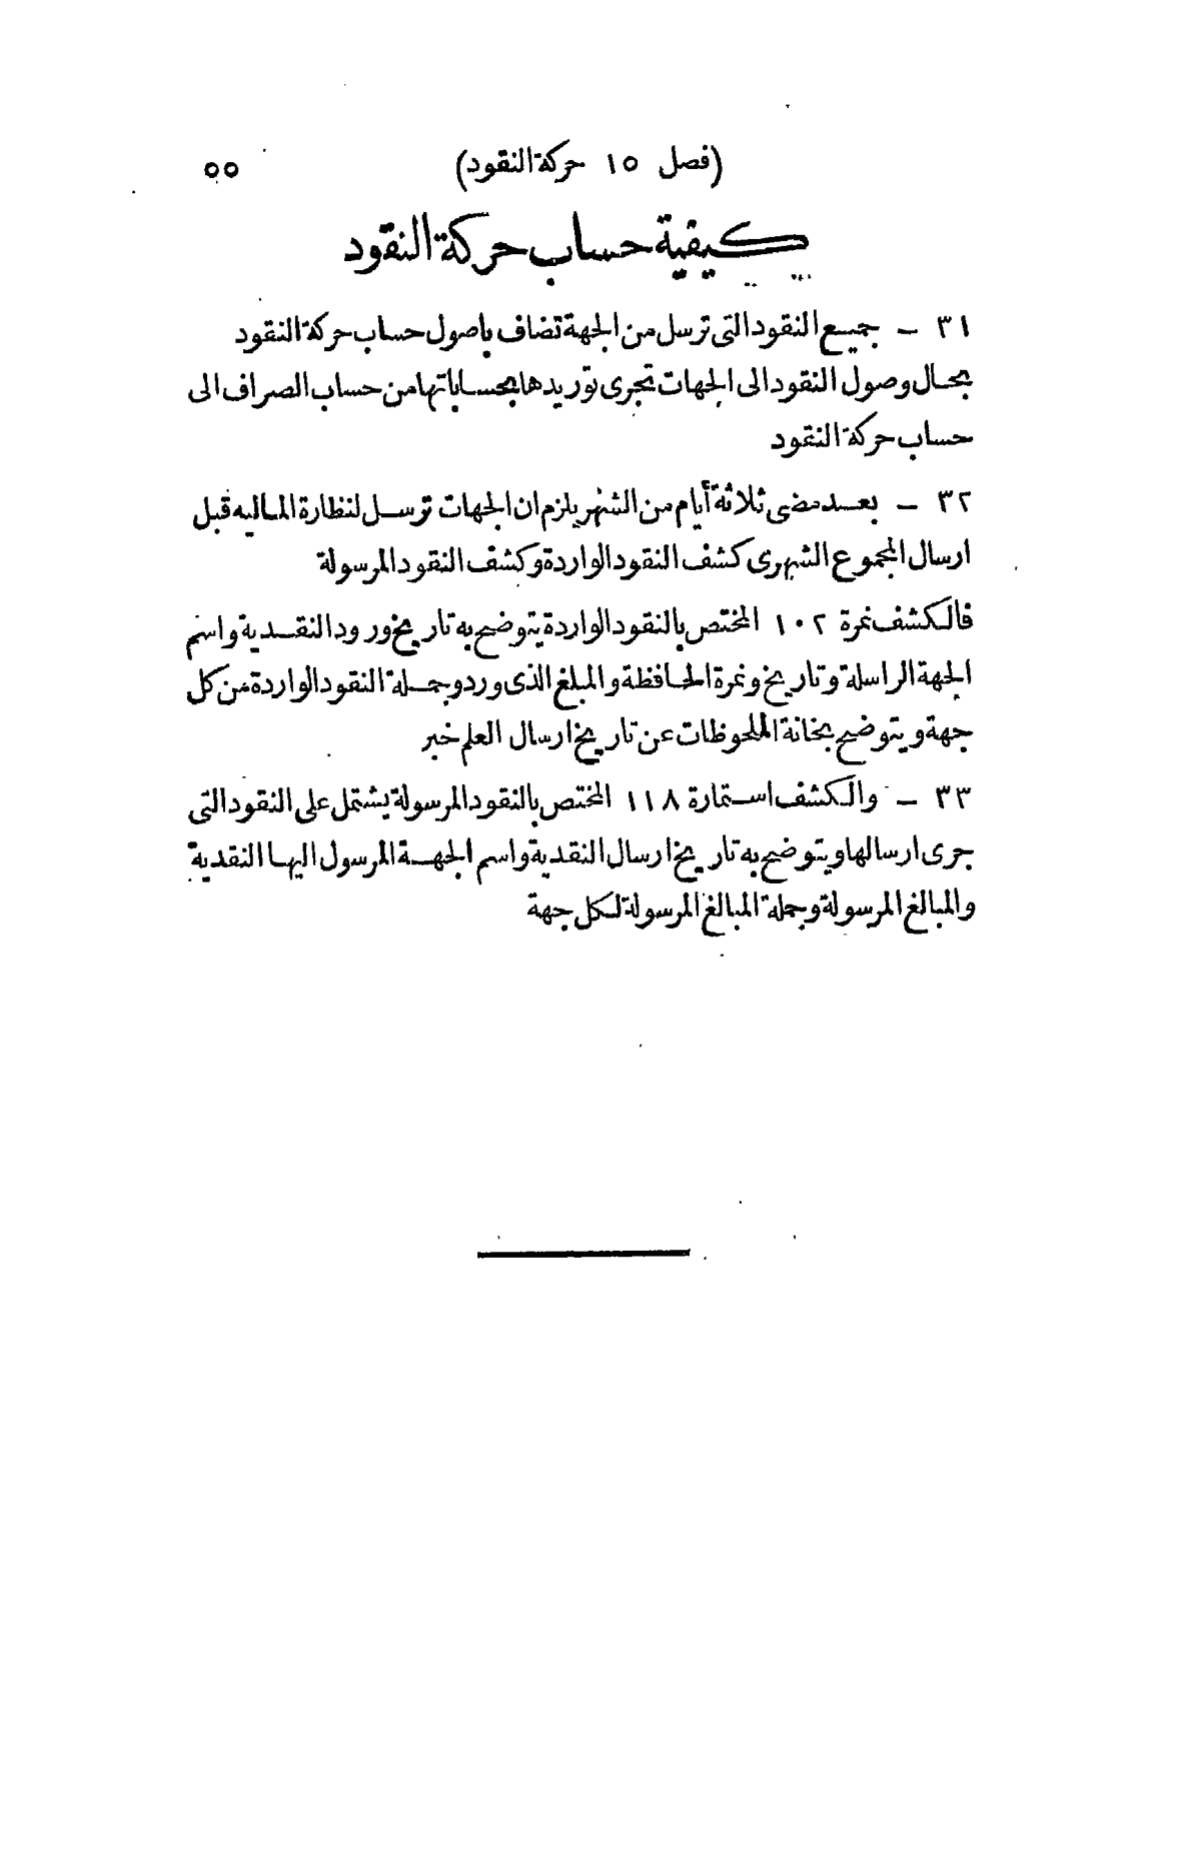 (فصل ١٥ حركة النقود) ٥٥
كيفية حساب حركة النقود
٣١ – جميع النقود التى ترسل من الجهة تضاف باصول حساب حركة النقود
بحال وصول النقود الى الجهات تجرى توريدها بحساباتها من حساب الصراف الى
حساب حركة النقود
٣٢ – بعد مضى ثلاثة أيام من الشهر يلزم ان الجهات ترسل لنظارة الماليه قبل
ارسال المجموع الشهرى كشف النقود الواردة وكشف النقود المرسولة
فالكشف نمرة ١٠٢ المختص بالنقود الواردة يتوضح به تاريخ ورود النقدية واسم
الجهة الراسلة وتاريخ ونمرة الحافظة والمبلغ الذى ورد وجملة النقود الواردة من كل
جهة ويتوضح بخانة الملحوظات عن تاريخ ارسال العلم خبر
٣٣ – والكشف استمارة ١١٨ المختص بالنقود المرسولة يشتمل على النقود التى
جرى ارسالها ويتوضح به تاريخ ارسال النقدية واسم الجهة المرسول اليها النقدية
والمبالغ المرسولة وجملة المبالغ المرسولة لكل جهة